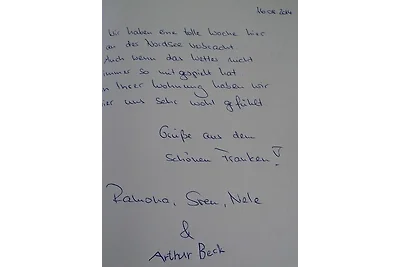 16.08.2014
Wir haben eine tolle Woche hier
an der Nordsee verbracht.
Auch wenn das Wetter nicht
immer so mitgespielt hat
in Ihrer Wohnung haben wir
hier uns sehr wohl gefühlt.
Grüße aus dem
schönen Franken!
Ramona, Sven, Nele
&
Arthur Beck